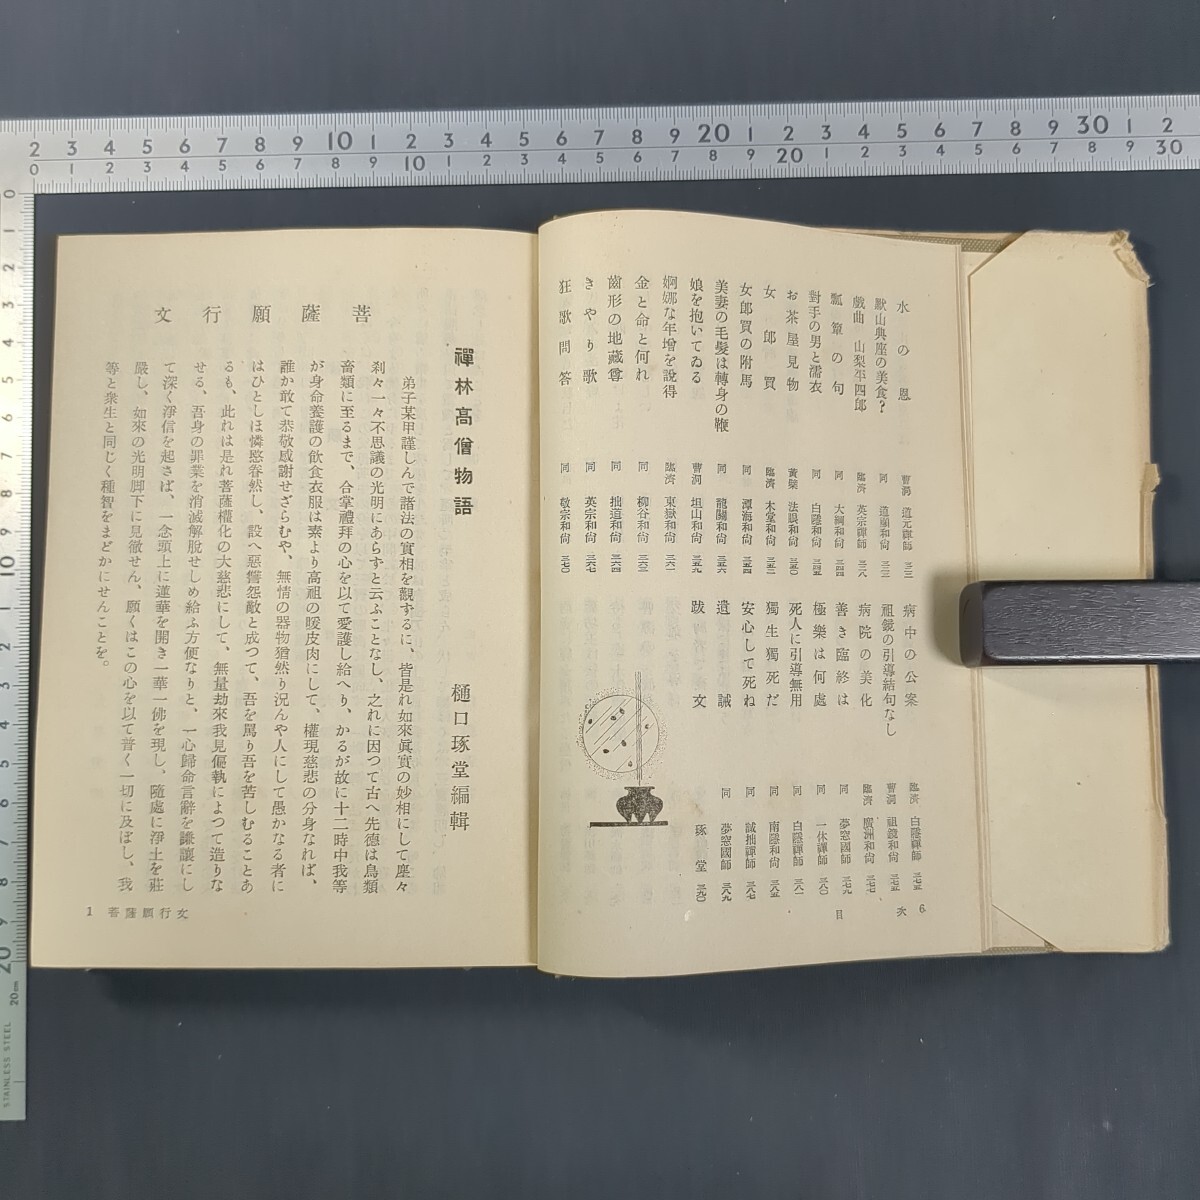 水の恩 曹洞 道元禪師
默山典座の美食? 同
戲曲 山梨平四郎 臨濟
瓢簞の句 同 大綱和尙 三四四
對手の男と濡衣 同 白隱和尙 三四五
お茶屋見物 黃檗 法眼和尙 三五〇
女郞買 臨濟 木堂和尙 三五二
女郞買の附馬 同 潭海和尙 三五四
美妻の毛髮は轉身の鞭 同 龍關和尙 三五六
娘を抱いてゐる 曹洞 坦山和尙 三五九
婀娜な年增を說得 臨濟 東嶽和尙 三六一
金と命と何れ 同 柳谷和尙 三六三
齒形の地藏尊 同 拙道和尙 三六四
きやり歌 同 英宗和尙 三六七
狂歌問答 同 敬宗和尙 三七〇
病中の公案 臨濟 白隱禪師 三七五
祖鏡の引導結句なし 曹洞 祖鏡和尙 三七五
病院の美化 臨濟 廣洲和尙 三七七
善き臨終は 同 夢窓國師 三七九
極樂は何處 同 一休禪師 三八〇
死人に引導無用 同 白隱禪師 三八一
獨生獨死だ 同 南隱和尙 三八五
安心して死ね 同 誠拙禪師 三八七
遺誡 同 夢窓國師 三八九
跋文 琢堂 三九〇
目次 6
禪林高僧物語
樋口琢堂編輯
菩薩願行文
弟子某甲謹しんで諸法の實相を觀するに、皆是れ如來眞實の妙相にして塵々
刹々一々不思議の光明にあらずと云ふことなし、之れに因つて古へ先德は鳥類
畜類に至るまで、合掌禮拜の心を以て愛護し給へり、かるが故に十二時中我等
が身命養護の飮食衣服は素より高祖の暖皮肉にして、權現慈悲の分身なれば、
誰か敢て恭敬感謝せざらむや、無情の器物猶然り況んや人にして愚かなる者に
はひとしほ憐愍眷然し、設へ惡讐怨敵と成つて、吾を罵り吾を苦しむることあ
るも、此れは是れ菩薩權化の大慈悲にして、無量劫來我見偏執によつて造りな
せる、吾身の罪業を消滅解脫せしめ給ふ方便なりと、一心歸命言辭を謙讓にし
て深く淨信を起さば、一念頭上に蓮華を開き一華一佛を現し、隨處に淨土を莊
嚴し、如來の光明脚下に見徹せん、願くはこの心を以て普く一切に及ぼし、我
等と衆生と同じく種智をまどかにせんことを。
菩薩願行文 1
2 3 4 5 6 7 8 9 10 1 2 3 4 5 6 7 8 9 20 1 2 3 4 5 6 7 8 9 30 1 2
0 1 2 3 4 5 6 7 8 9 10 1 2 3 4 5 6 7 8 9 20 1 2 3 4 5 6 7 8 9 30
0 1 2 3 4 5 6 7 8 9 10 1 2 3 4 5 6 7 8 9 20
20cm
STAINLESS STEEL